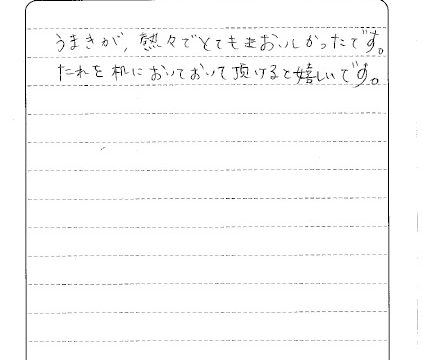 うまきが、熱々でとてもおいしかったです。
たれを机においておいて頂けると嬉しいです。